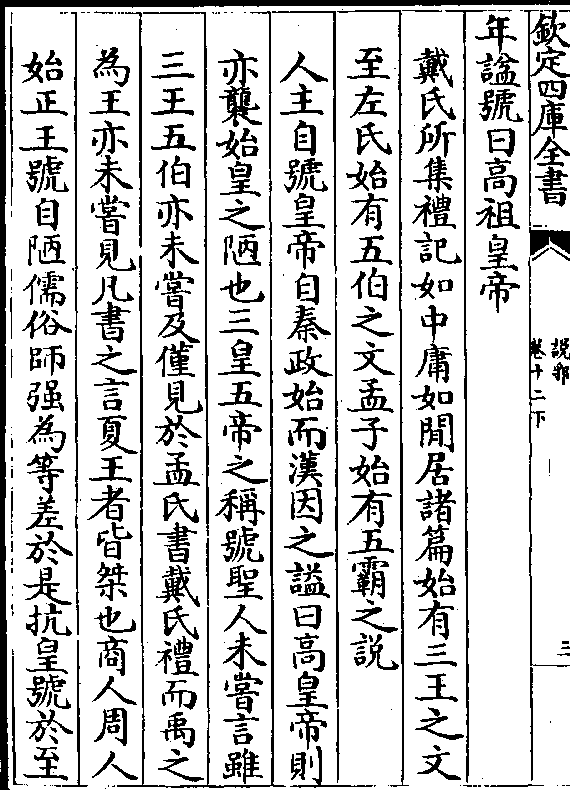 欽定四庫全書
説郛
卷十二下
三
年謚號曰髙祖皇帝
戴氏所集禮記如中庸如閒居諸篇始有三王之文
至左氏始有五伯之文孟子始有五霸之説
人主自號皇帝自秦政始而漢因之謚曰髙皇帝則
亦襲始皇之陋也三皇五帝之稱號聖人未嘗言雖
三王五伯亦未嘗及僅見於孟氏書戴氏禮而禹之
為王亦未嘗見凡書之言夏王者皆桀也商人周人
始正王號自陋儒俗師强為等差於是抗皇號於至